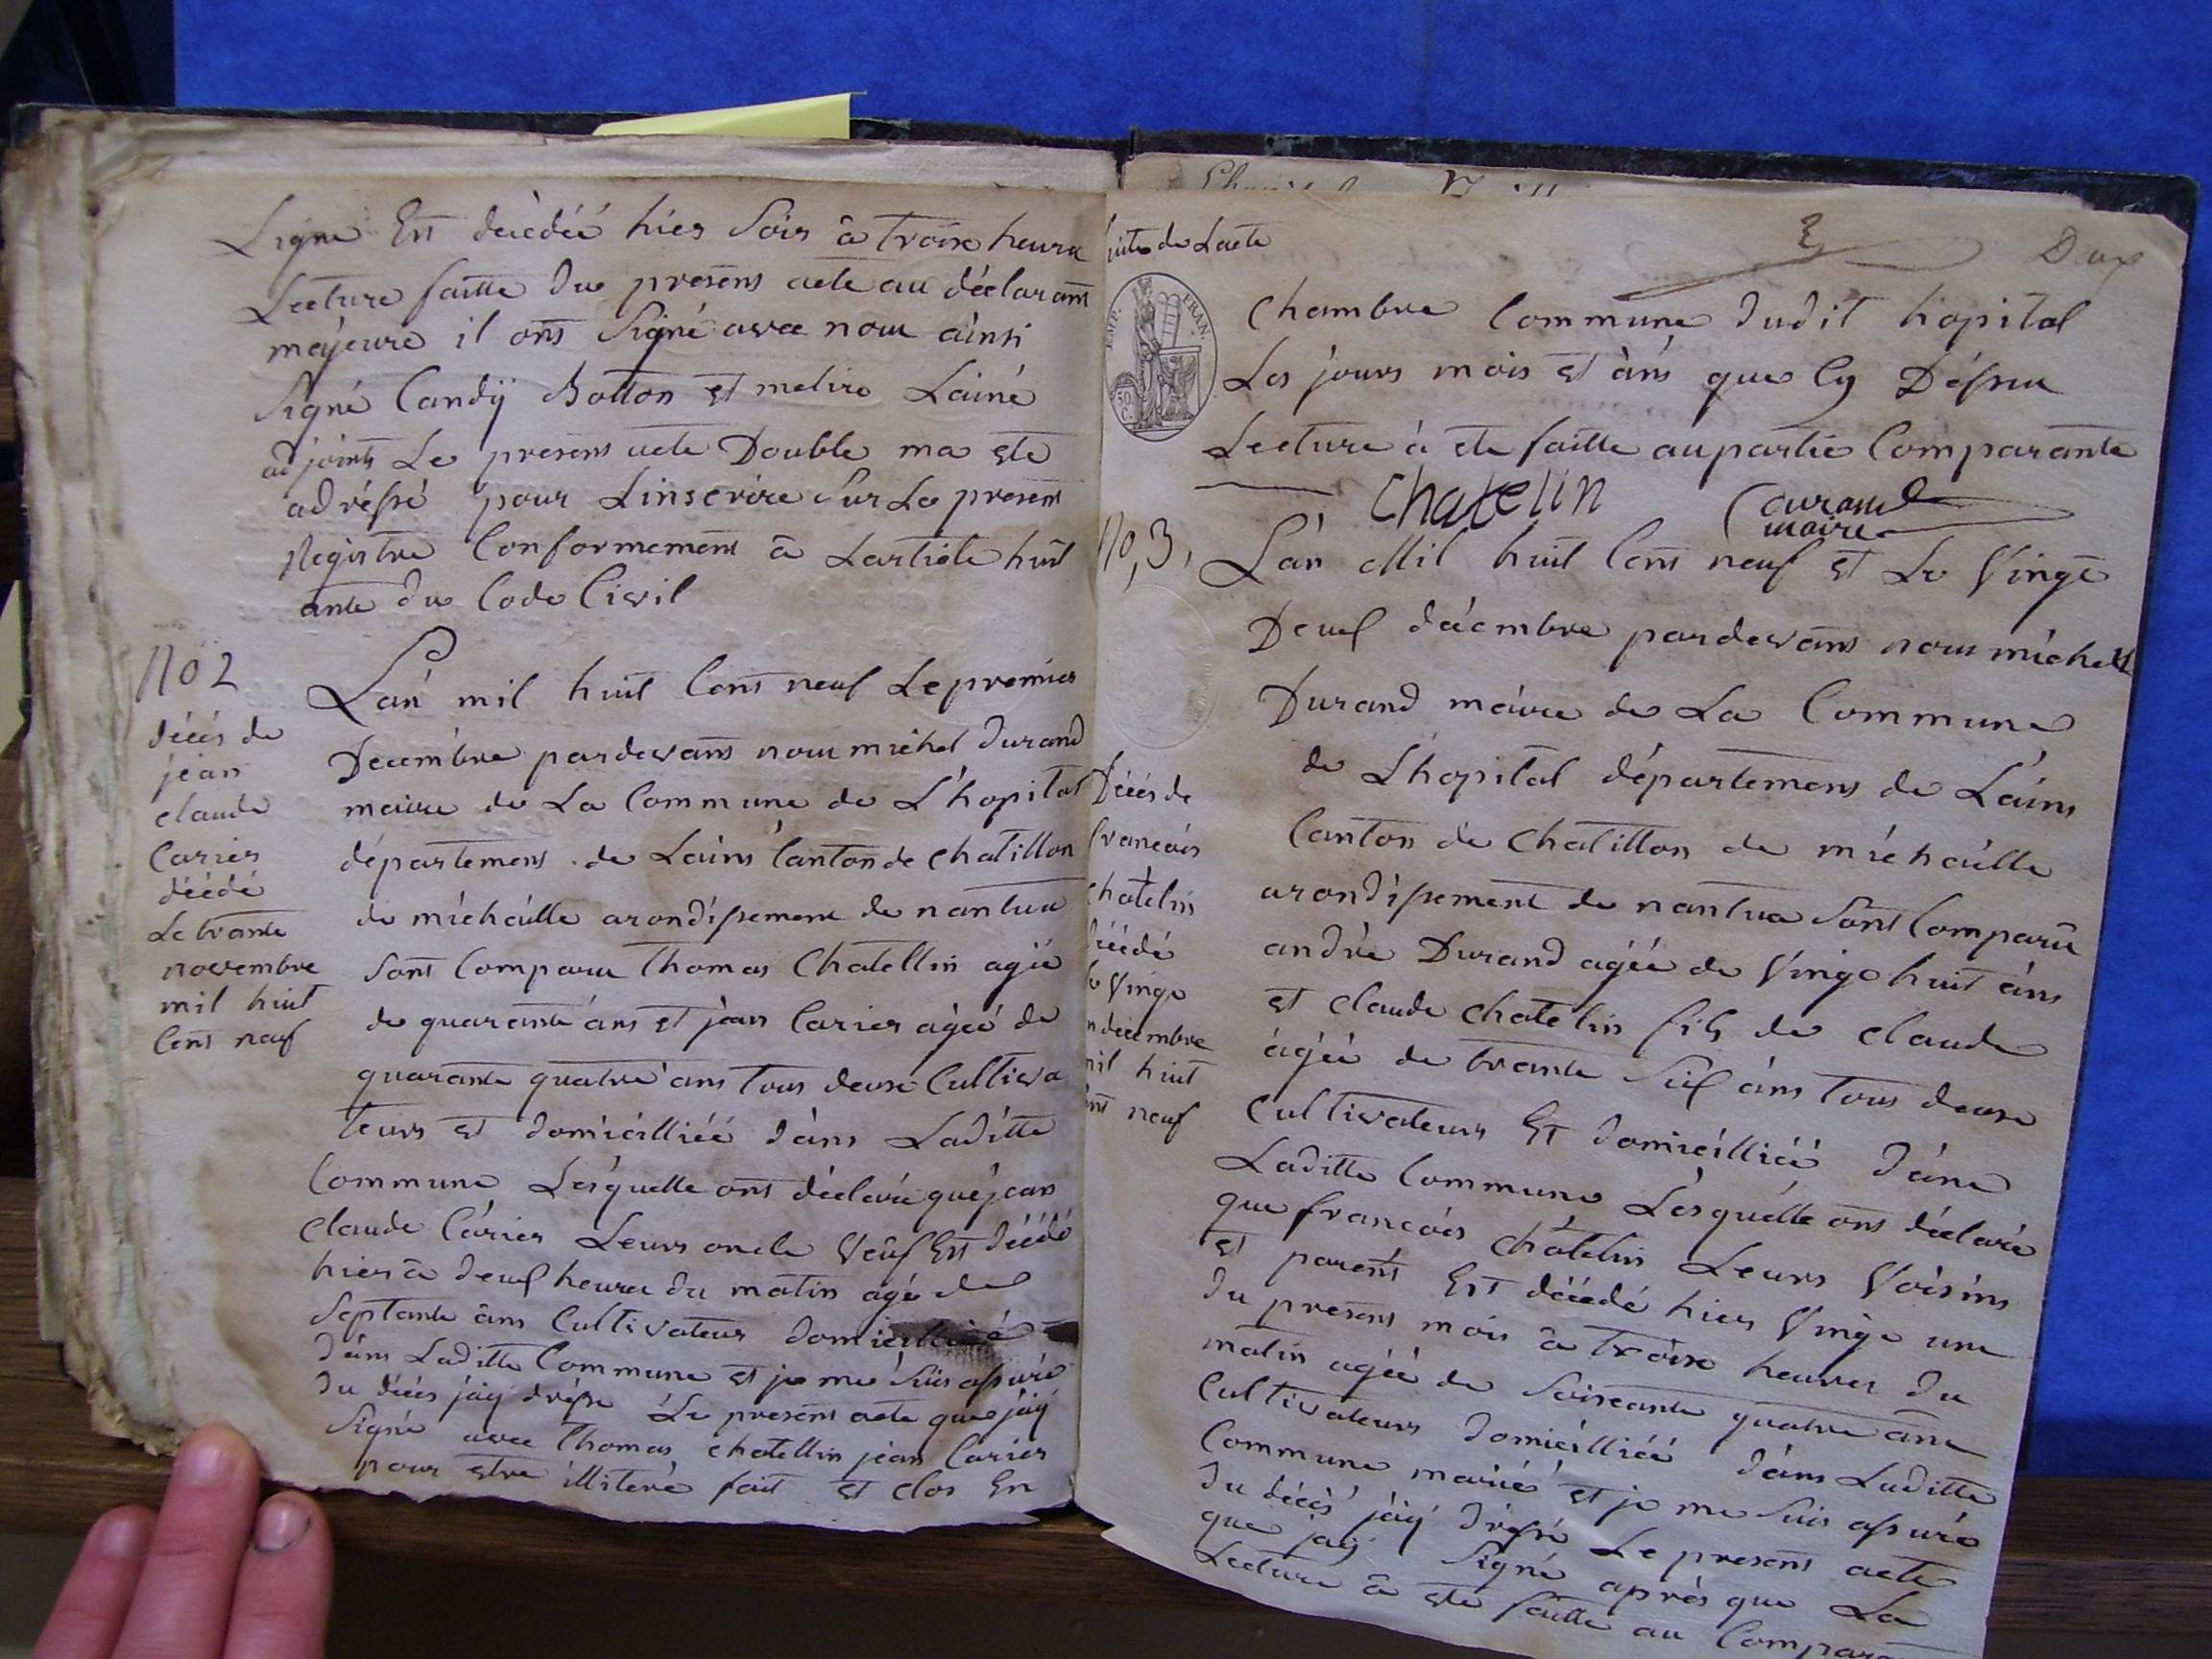 Ligne Est décédée hier Soir a troise heure
Lecture faitte du presens acte au déclarans
mejeure il ons Signé avec nous ainsi
Signé Candÿ Botton et Lainé
adjoints Le presens acte Double ma ete
adréssé pour Linscrire Sur Le presens
Registre Conformement a Larticle huit
ante du Code Civil
No 2
décés de
jean
claude
Carier
décédé
Le trante
novembre
mil huit
Cens neuf
Lan mil huit Cens neuf Le premier
Decembre pardevans nous michel durand
maire de La Commune de L'hopital
département de Lains Canton de chatillon
de michaille arondissement de nantua
Sont Comparu thomas Chatellin agée
de quarante ans et jean Carier agée de
quarante quatre ans tous deuse Cultiva
teurs et domicilliéé dans Laditte
Commune Lesquelle ons déclaré que jean
claude Carier Leurs oncle Veuf Est décédé
hier a deuf heure du matin agé de
Septante ans Cultivateur domicillié
dans Laditte Commune et je me Suis assuré
du décés jay drésse Le presens acte que jay
Signé avec thomas chatellin jean Carier
pour etre illiteré fait et clos En
Suite de Lacte
2
Deux
EMP. FRAN.
50 C.
Chambre Commune dudit hopital
Les jours mois et ans que Cy Déssu
Lecture à ete faitte au partie Comparante
Chatelin Durand
maire
No, 3,
Lan Mil huit Cens neuf et Le Vingt
Deuf décembre pardevans nous michel
Durand maire de La Commune
de L'hopital département de Lains
Canton de Chatillon de michaille
arondissement de nantua Sont Comparu
andré Durand agée de Vingt huit ans
et claude chatelin fils de claude
agéé de trante Sif ans tous deuse
Cultivateurs Et domicilliéé dans
Laditte Commune Lesquelle ons déclaré
que francois chatelin Leurs Voisins
et parents Est décédé hier Vingt une
du presens mois a troise heures du
matin agéé de Soiseante quatre ans
Cultivateurs domicilliéé dans Laditte
Commune marié et je me Suis assuré
du décés jay dréssé Le presens acte
que jay Signé aprés que La
Lecture a ete faitte au Compara
Décés de
francois
chatelin
décédé
Le Vingt
un décembre
mil huit
Cens neuf